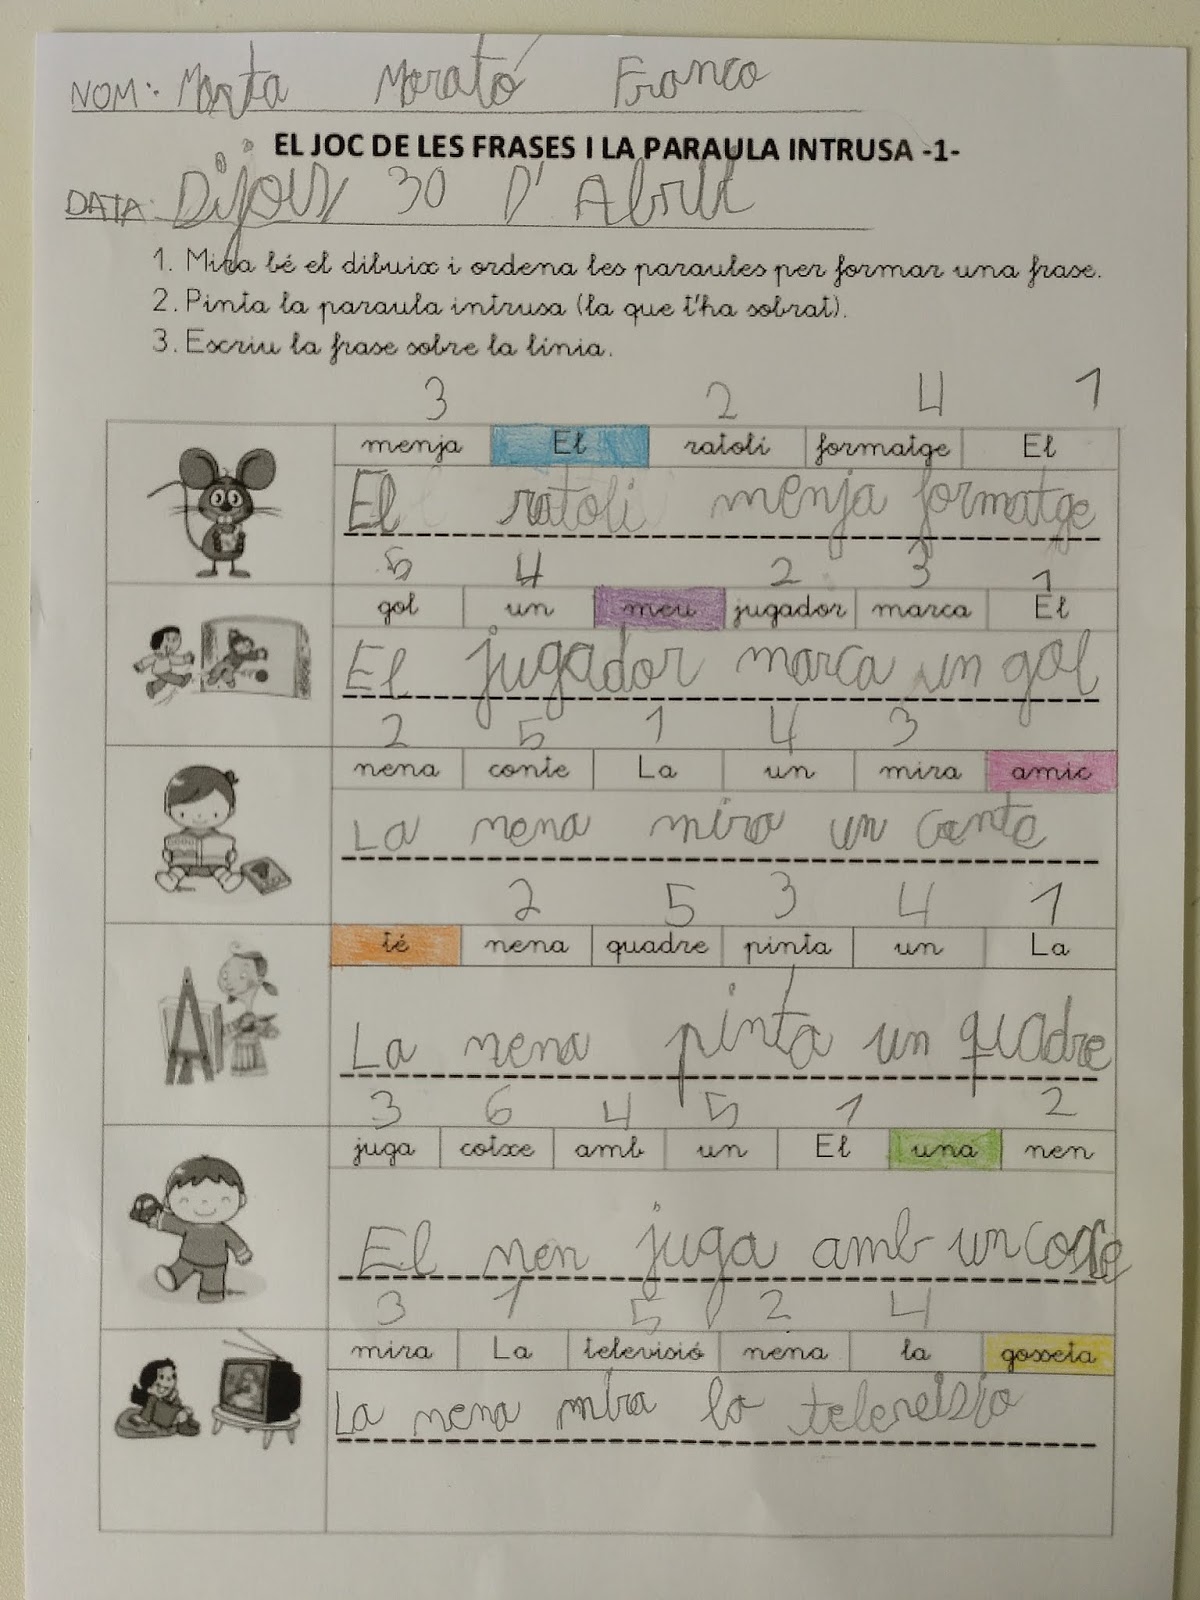 NOM: Marta Morató Franco
EL JOC DE LES FRASES I LA PARAULA INTRUSA -1-
DATA: Dijous 30 D' Abril
1. Mira bé el dibuix i ordena les paraules per formar una frase.
2. Pinta la paraula intrusa (la que t'ha sobrat).
3. Escriu la frase sobre la línia.
3 2 4 1
menja El ratolí formatge El
El ratoli menja formatge
5 4 2 3 1
gol un meu jugador marca El
El jugador marca un gol
2 5 1 4 3
nena conte La un mira amic
La nena mira un conte
2 5 3 4 1
té nena quadre pinta un La
La nena pinta un quadre
3 6 4 5 1 2
juga cotxe amb un El una nen
El nen juga amb un
3 1 5 2 4
mira La televisió nena la gosseta
La nena mira la